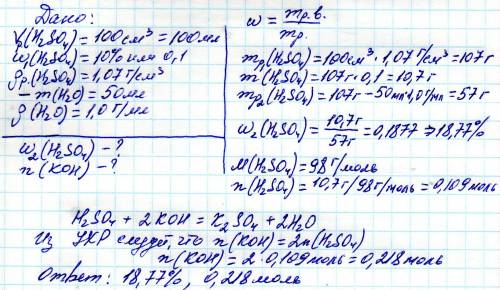 Дано:
V₁(H₂SO₄) = 100см³ = 100мл
w₁(H₂SO₄) = 10% или 0,1
ρр.(H₂SO₄) = 1,07г/см³
− m(H₂O) = 50мл
ρ(H₂O) = 1,0г/мл
w₂(H₂SO₄) − ?
n(KOH) − ?
w = mр.в. / mр.
mр₁(H₂SO₄) = 100см³ · 1,07г/см³ = 107г
m(H₂SO₄) = 107г · 0,1 = 10,7г
mр₂(H₂SO₄) = 107г − 50мл · 1,0г/мл = 57г
w₂(H₂SO₄) = 10,7г / 57г = 0,1877 ⇒ 18,77%
M(H₂SO₄) = 98г/моль
n(H₂SO₄) = 10,7г / 98г/моль = 0,109моль
H₂SO₄ + 2KOH = K₂SO₄ + 2H₂O
Из УХР следует, что n(KOH) = 2n(H₂SO₄)
n(KOH) = 2 · 0,109моль = 0,218моль
Ответ: 18,77%, 0,218моль